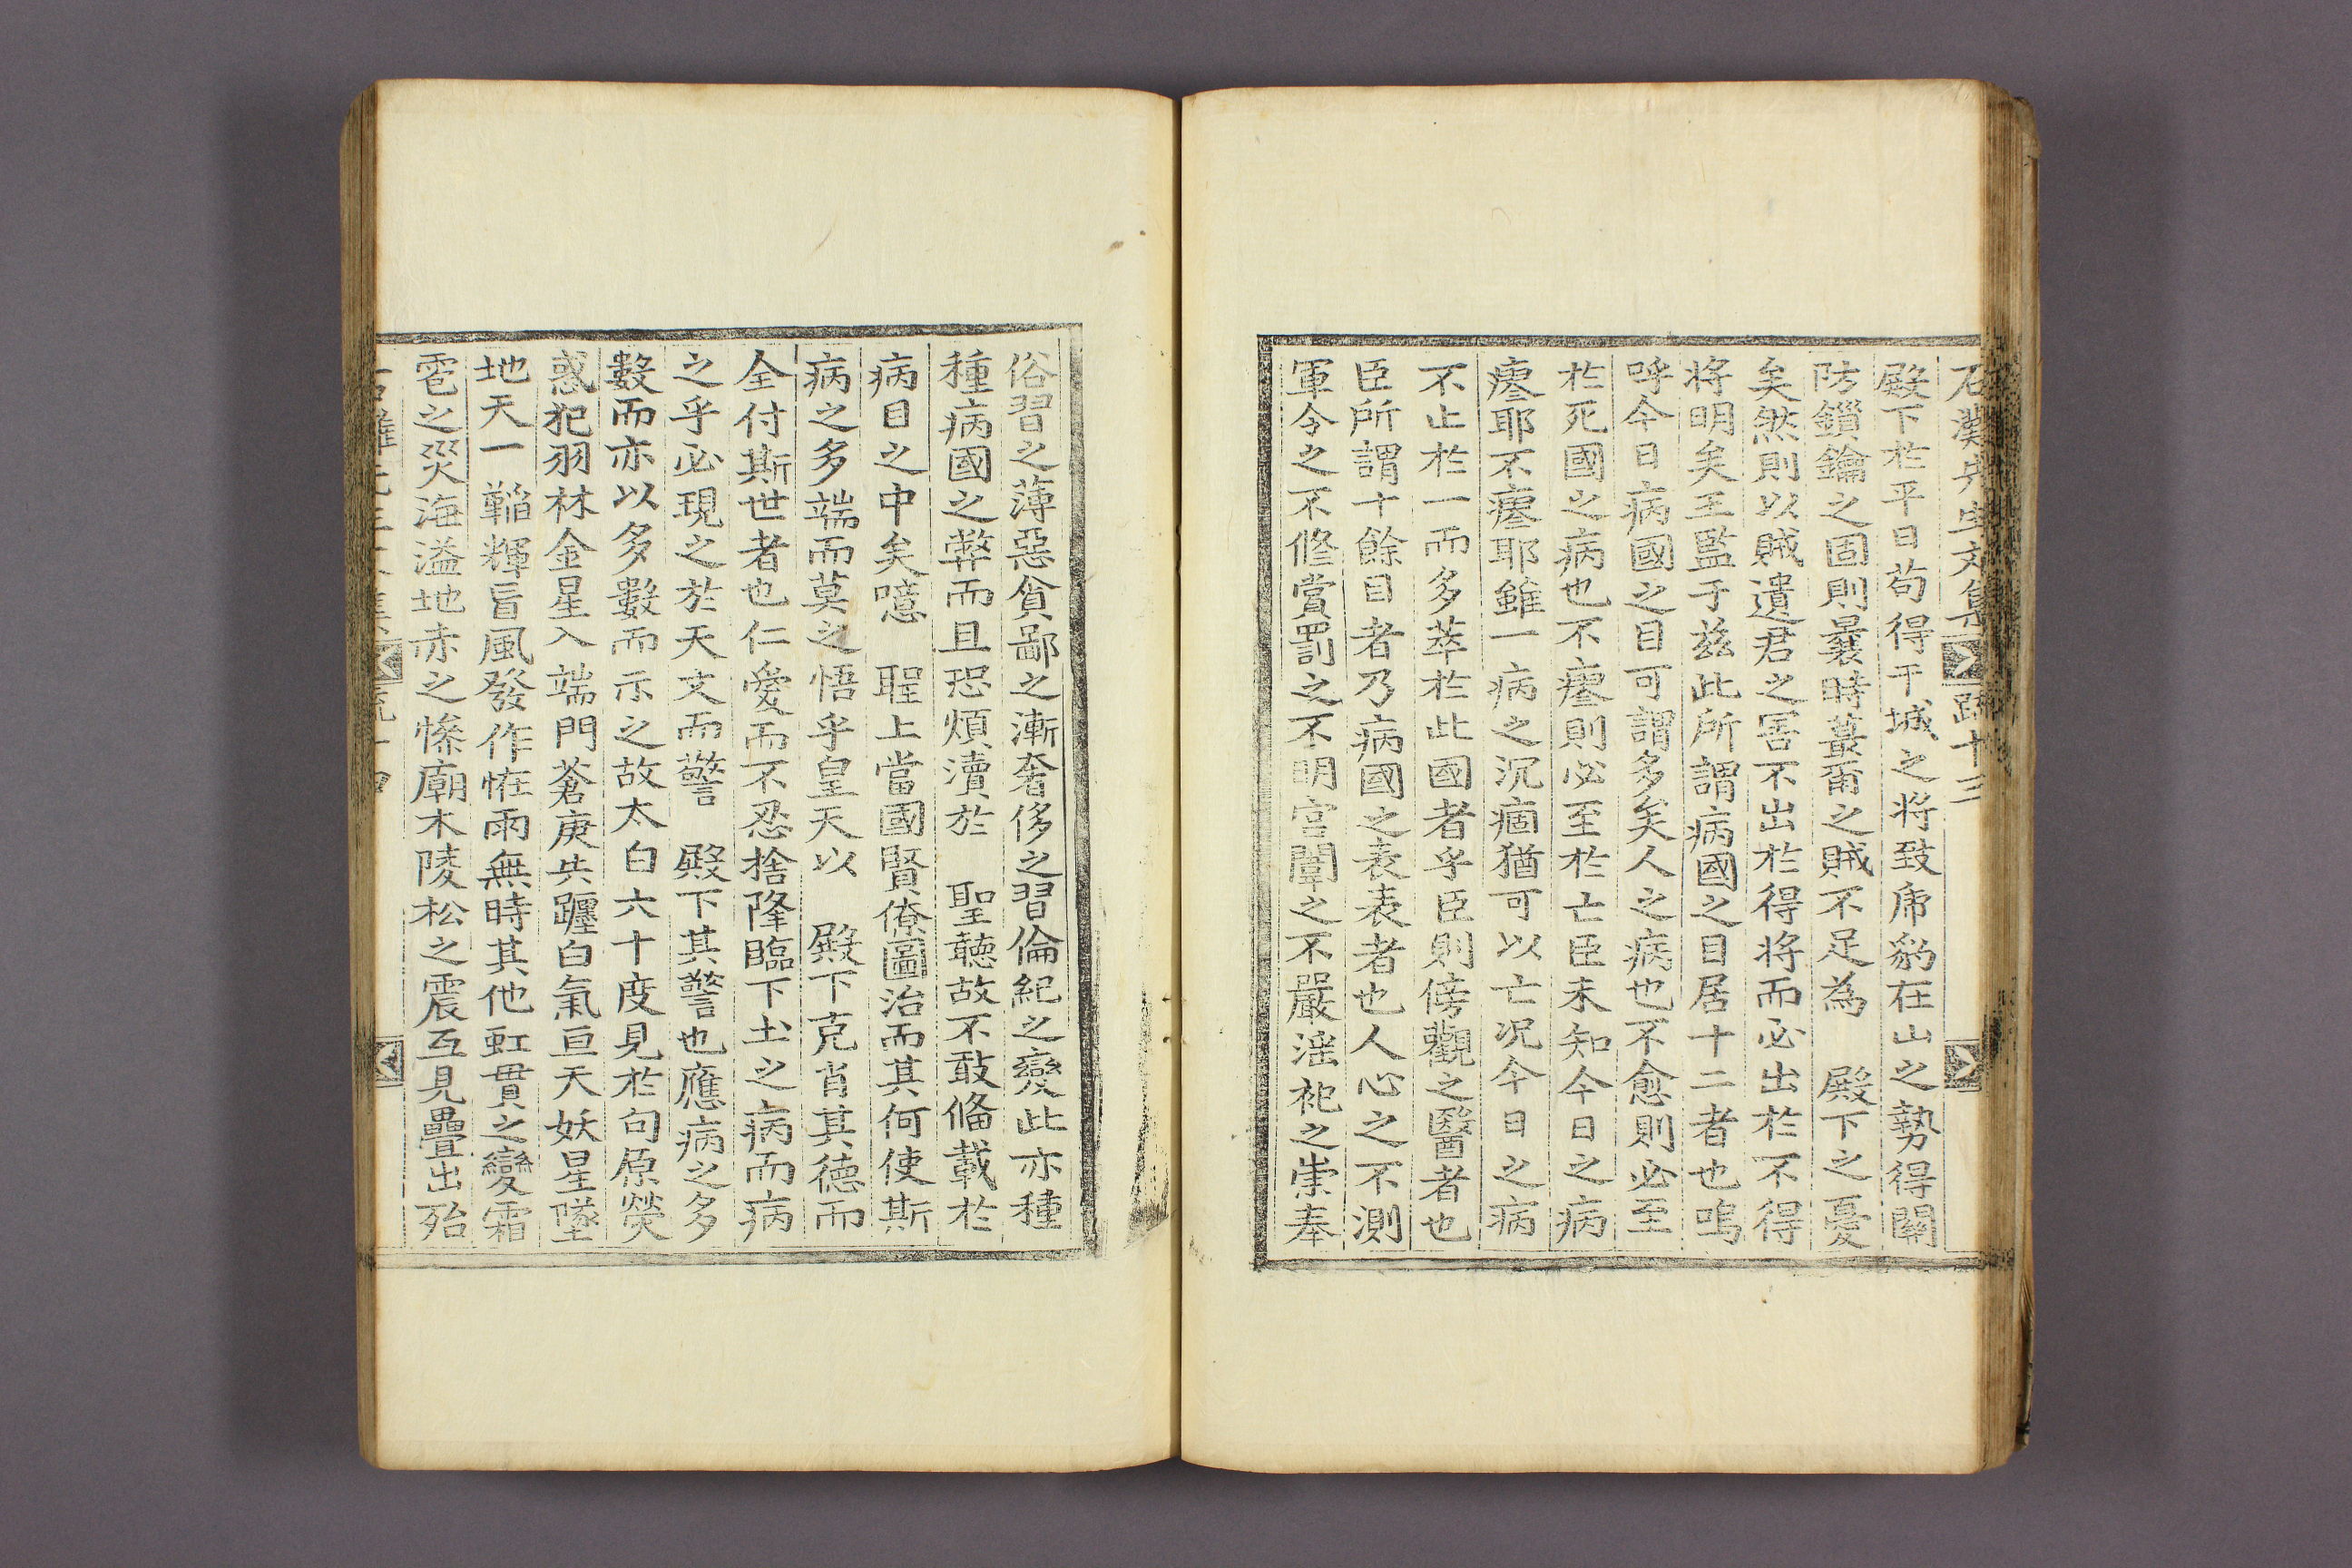 石灘先生文集 疏 十三
殿下於平日苟得干城之将致乕豹在山之勢得關
防鎖鑰之固則曩時蕞甭之賊不足為 殿下之憂
矣然則以賊遺君之害不出於得将而必出於不得
将明矣王監于兹此所謂病國之目居十二者也嗚
呼今日病國之目可謂多矣人之病也不愈則必至
於死國之病也不瘳則必至於亡臣未知今日之病
瘳耶不瘳耶雖一病之沉痼猶可以亡况今日之病
不止於一而多萃於此國者乎臣則傍觀之醫者也
臣所謂十餘目者乃病國之表表者也人心之不測
軍令之不修賞罰之不明宮闈之不嚴淫祀之崇奉
俗習之薄惡貪鄙之漸奢侈之習倫紀之變此亦種
種病國之弊而且恐煩瀆於 聖聽故不敢俻載於
病目之中矣噫 聖上當國賢僚圖治而其何使斯
病之多端而莫之悟乎皇天以 殿下克肖其德而
全付斯世者也仁愛而不忍捨降臨下土之病而病
之乎必現之於天文而警 殿下其警也應病之多
數而亦以多數而示之故太白六十度見於句原熒
惑犯羽林金星入端門蒼庚共躔白氣亘天妖星墜
地天一韜輝盲風發作恠雨無時其他虹貫之變霜
雹之災海溢地赤之慘廟木陵松之震互見疊出殆